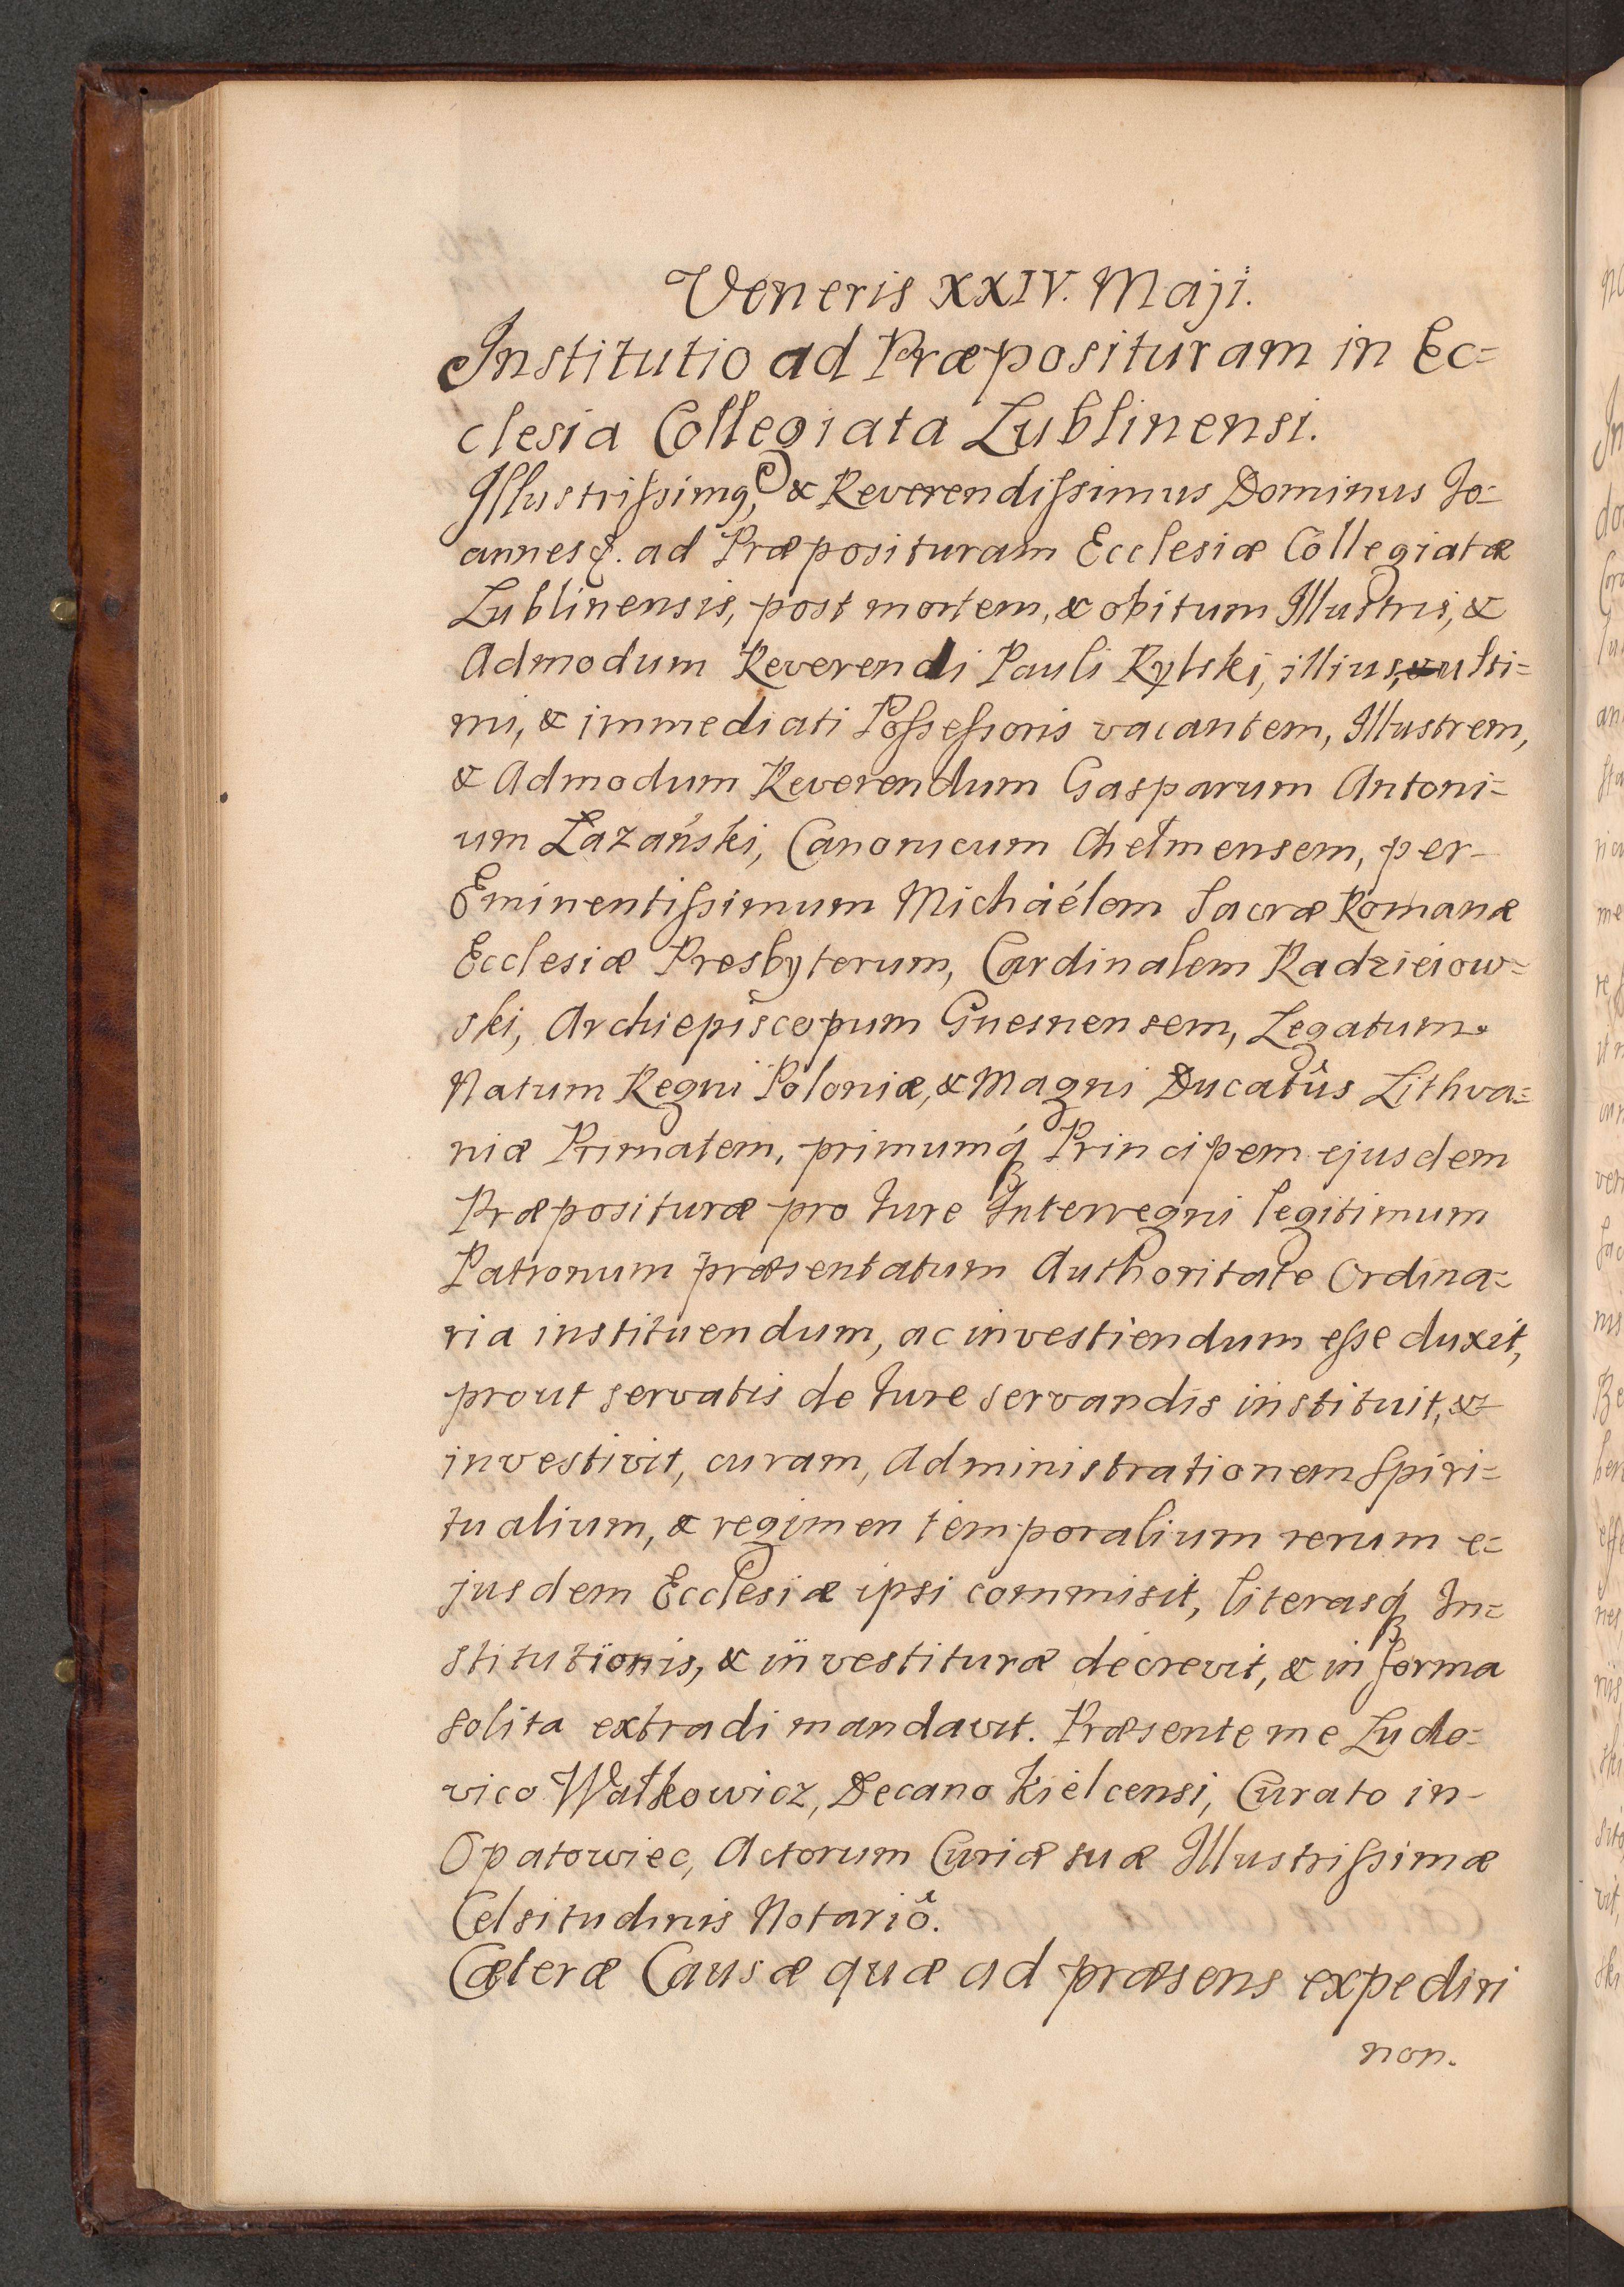 Veneris XXIV. Maji.
Institutio ad Præposituram in Ec=
clesia Collegiata Lublinensi.
Illustrißimꝰ, & Reverendißimus Dominus Jo=
annes &. ad Præposituram Ecclesiæ Collegiatæ
Lublinensis, post mortem, & obitum Illustris, &
Admodum Reverendi Pauli Rylski, illius, ulti=
mi, & immediati Poßeßoris vacantem, Illustrem,
& Admodum Reverendum Gasparum Antoni=
um Łazański, Canonicum Chełmensem, per-
Eminentißimum Michaélem Sacræ Romanæ
Ecclesiæ Presbyterum, Cardinalem Radzieiow=
ski, Archiepiscopum Gnesnensem, Legatum
Natum Regni Poloniæ, & Magni Ducatûs Lithva=
niæ Primatem, primumqꝫ Principem ejusdem
Præposituræ pro Jure Interregni legitimum
Patronum præsentatum Authoritate Ordina=
ria instituendum, ac investiendum eße duxit,
prout servatis de Jure servandis instituit, &
investivit, curam, Administrationem Spiri=
tualium, & regimen temporalium rerum e=
jusdem Ecclesiæ ipsi commisit, literasqꝫ In=
stitutionis, & investituræ decrevit, & in forma
solita extradi mandavit. Præsente me Ludo=
vico Wałkowicz, Decano Kielcensi, Curato in-
Opatowiec, Actorum Curiæ suæ Illustrißimæ
Celsitudinis Notariô.
Cæteræ Causæ quæ ad præsens expediri
non.